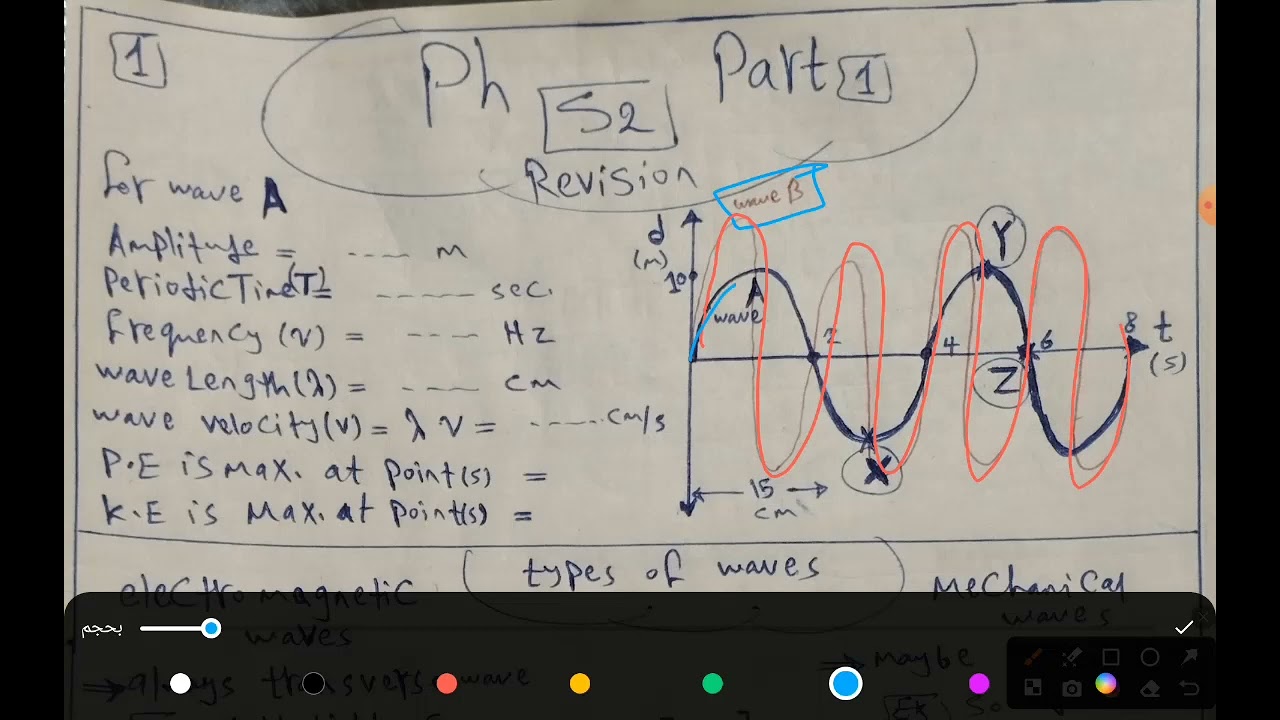 1
Ph Part 1
S2
Revision
for wave A
Amplitude = ---- m
Periodic Time(T)= ------ sec.
frequency (ν) = ---- Hz
wave Length(λ) = ---- cm
wave velocity(v) = λ ν = ------ cm/s
P.E is max. at point(s) =
K.E is Max. at Point(s) =
wave B
d
(m)
10
A
wave
Y
2
4
6
8
t
(s)
Z
X
15
cm
types of waves
electromagnetic
waves
Mechanical
waves
always transverse wave
maybe
Ex
بحجم